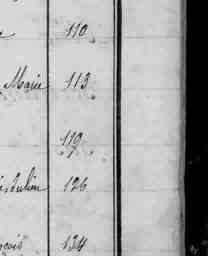 110
Marie 113
119
is Julien 126
çois 134